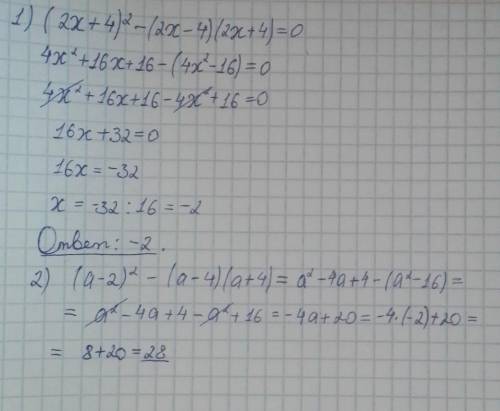 1) (2x+4)²-(2x-4)(2x+4)=0
4x²+16x+16-(4x²-16)=0
4x²+16x+16-4x²+16=0
16x+32=0
16x=-32
x=-32:16=-2
Ответ: -2.
2) (a-2)²-(a-4)(a+4)=a²-4a+4-(a²-16)=
=a²-4a+4-a²+16=-4a+20=-4·(-2)+20=
=8+20=28